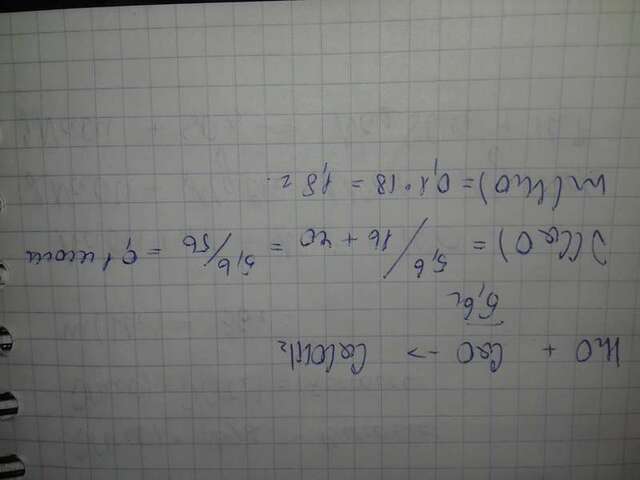 H₂O + CaO → Ca(OH)₂
5,6г
ν(CaO) = 5,6/16+40 = 5,6/56 = 0,1 моль
m(H₂O) = 0,1·18 = 1,8 г.